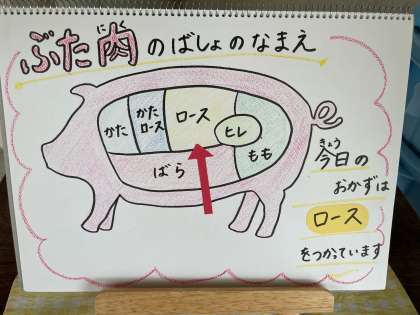 ぶた肉のばしょのなまえ
にく
かた
かた
ロース
ロース
ヒレ
もも
ばら
きょう
今日の
おかずは
ロース
をつかっています